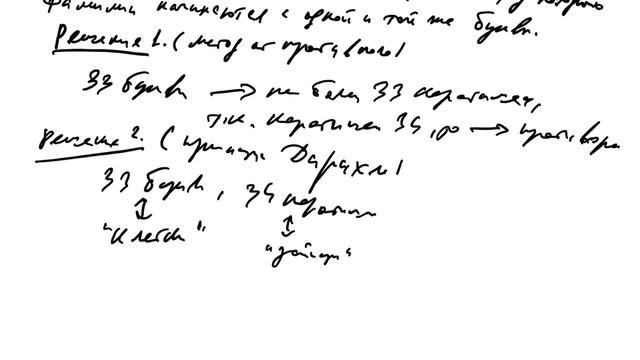 фамилии начинаются с одной и той же буквы.
Решение 1. (метод от противного)
33 буквы → не более 33 перваков,
т.к. 34, то → противоре
Решение 2. (принцип Дирихле)
33 буквы, 34
"клетки" "зайцы"